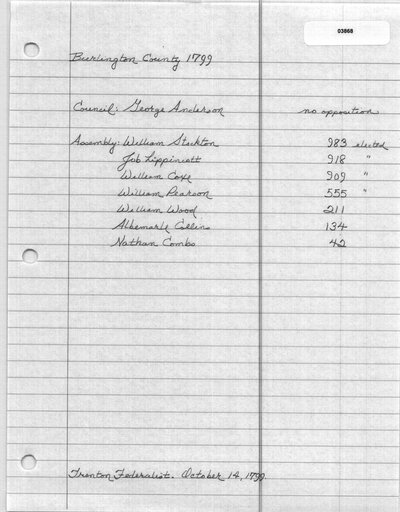 03868
Burlington County 1799
Council: George Anderson no opposition
Assembly: William Stockton 983 elected
Job Lippincott 918 "
William Coxe 909 "
William Pearson 555 "
William Wood 211
Albemarle Collins 134
Nathan Combs 42
Trenton Federalist. October 14, 1799.